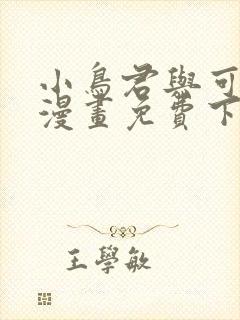 小鳥君與可
漫畫免費下
王學敏